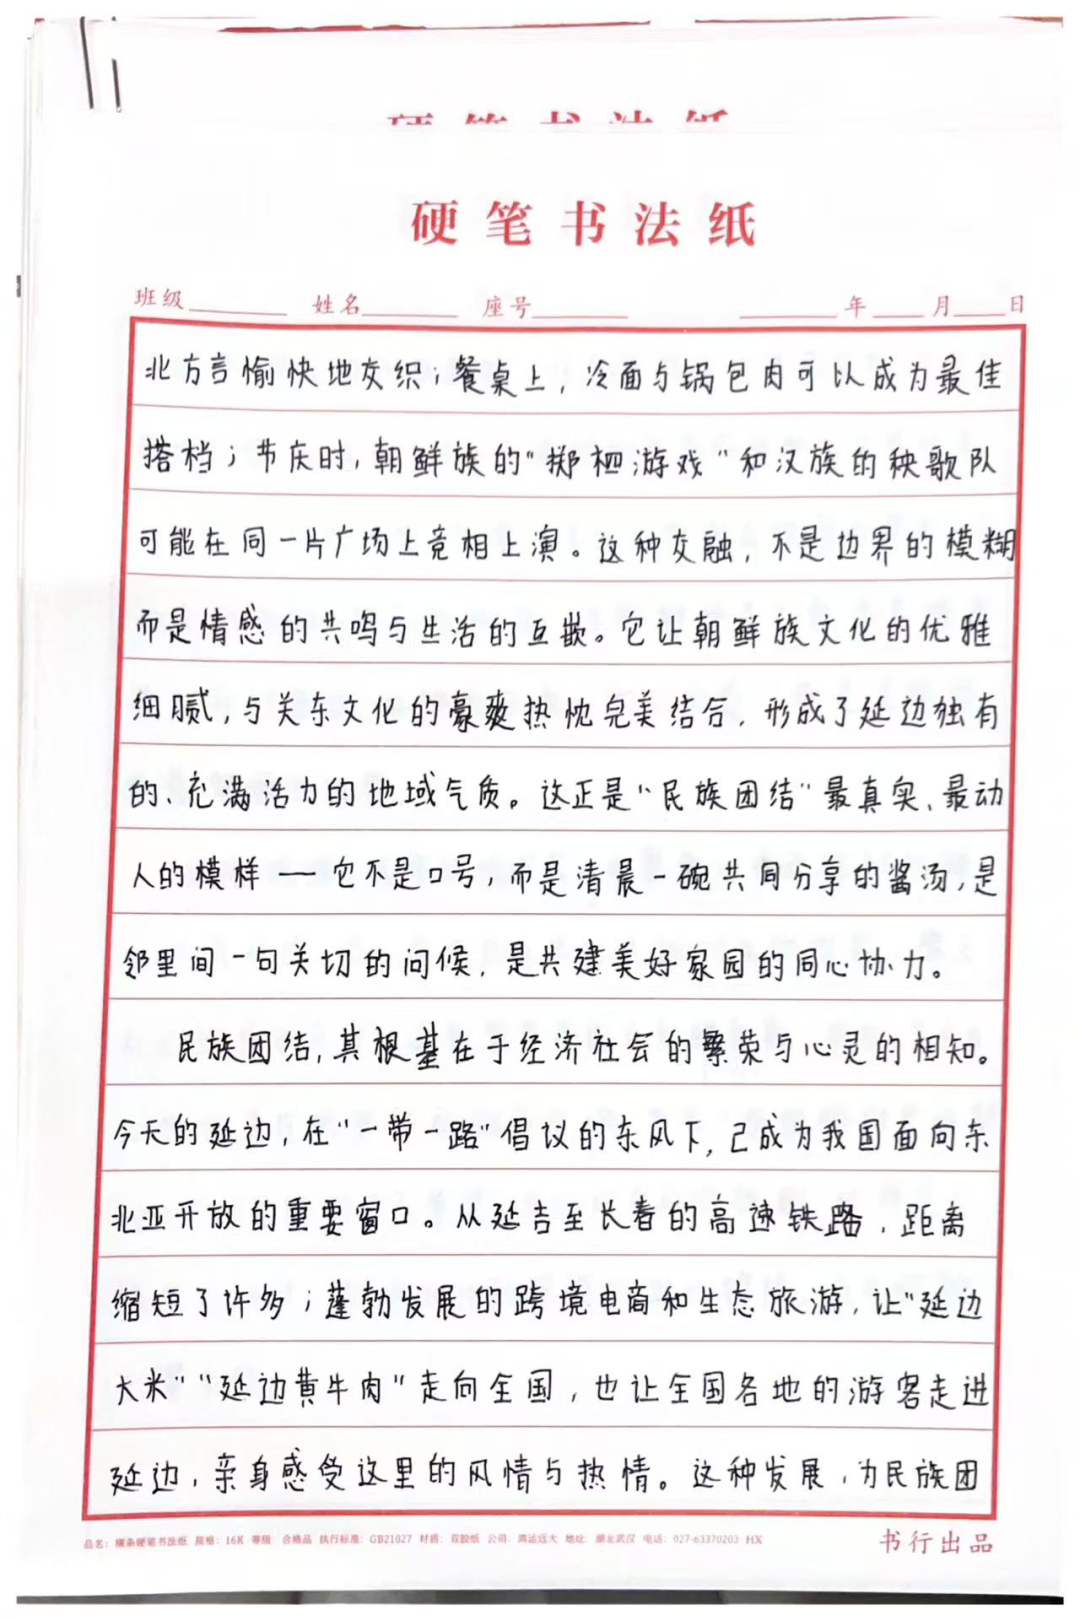 硬笔书法纸
硬笔书法纸
班级 姓名 座号 年 月 日
北方言愉快地交织；餐桌上，冷面与锅包肉可以成为最佳
搭档；节庆时，朝鲜族的“掷柶游戏”和汉族的秧歌队
可能在同一片广场上竞相上演。这种交融，不是边界的模糊
而是情感的共鸣与生活的互嵌。它让朝鲜族文化的优雅
细腻，与关东文化的豪爽热忱完美结合，形成了延边独有
的、充满活力的地域气质。这正是“民族团结”最真实、最动
人的模样——它不是口号，而是清晨一碗共同分享的酱汤，是
邻里间一句关切的问候，是共建美好家园的同心协力。
民族团结，其根基在于经济社会的繁荣与心灵的相知。
今天的延边，在“一带一路”倡议的东风下，已成为我国面向东
北亚开放的重要窗口。从延吉至长春的高速铁路，距离
缩短了许多；蓬勃发展的跨境电商和生态旅游，让“延边
大米”“延边黄牛肉”走向全国，也让全国各地的游客走进
延边，亲身感受这里的风情与热情。这种发展，为民族团
品名：横条硬笔书法纸 规格：16K 等级：合格品 执行标准：GB21027 材质：双胶纸 公司：鸿运远大 地址：湖北武汉 电话：027-63370203 HX
书行出品